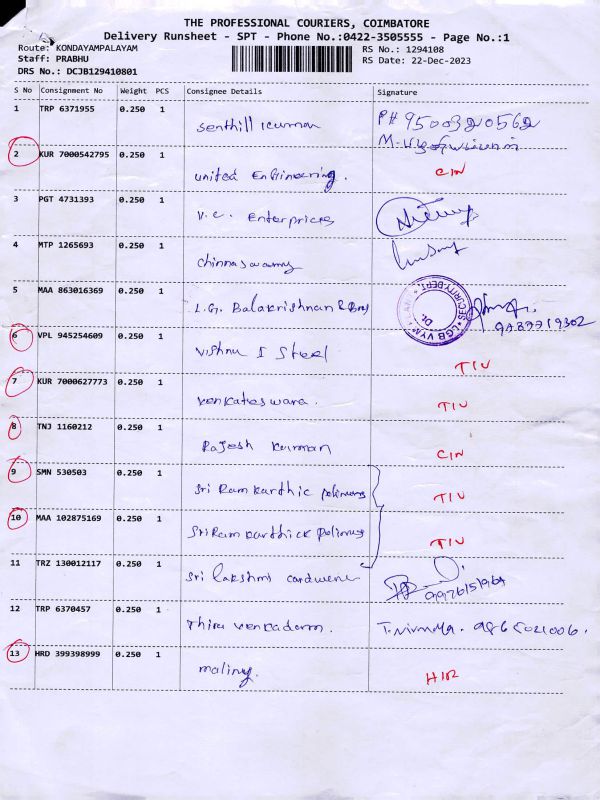 THE PROFESSIONAL COURIERS, COIMBATORE
Delivery Runsheet - SPT - Phone No.:0422-3505555 - Page No.:1
Route: KONDAYAMPALAYAM
Staff: PRABHU
DRS No.: DCJB129410801
RS No.: 1294108
RS Date: 22-Dec-2023
S No Consignment No Weight PCS Consignee Details Signature
1 TRP 6371955 0.250 1 Senthill kumar PH 9500320562
2 KUR 7000542795 0.250 1 united Engineering. CIN
3 PGT 4731393 0.250 1 V.C. Enterprices
4 MTP 1265693 0.250 1 Chinnaswamy
5 MAA 863016369 0.250 1 L.G. Balakrishnan & Bros
SECURITY-DEPT LGB
6 VPL 945254609 0.250 1 Vishnu I Steel TIU
7 KUR 7000627773 0.250 1 venkateswara. TIU
8 TNJ 1160212 0.250 1 Rajesh kumar CIN
9 SMN 530503 0.250 1 Sri Ram karthic TIU
10 MAA 102875169 0.250 1 Sri Ram karthick TIU
11 TRZ 130012117 0.250 1 Sri lakshmi
12 TRP 6370457 0.250 1 Thiru 9865021006.
13 HRD 399398999 0.250 1 maliny.